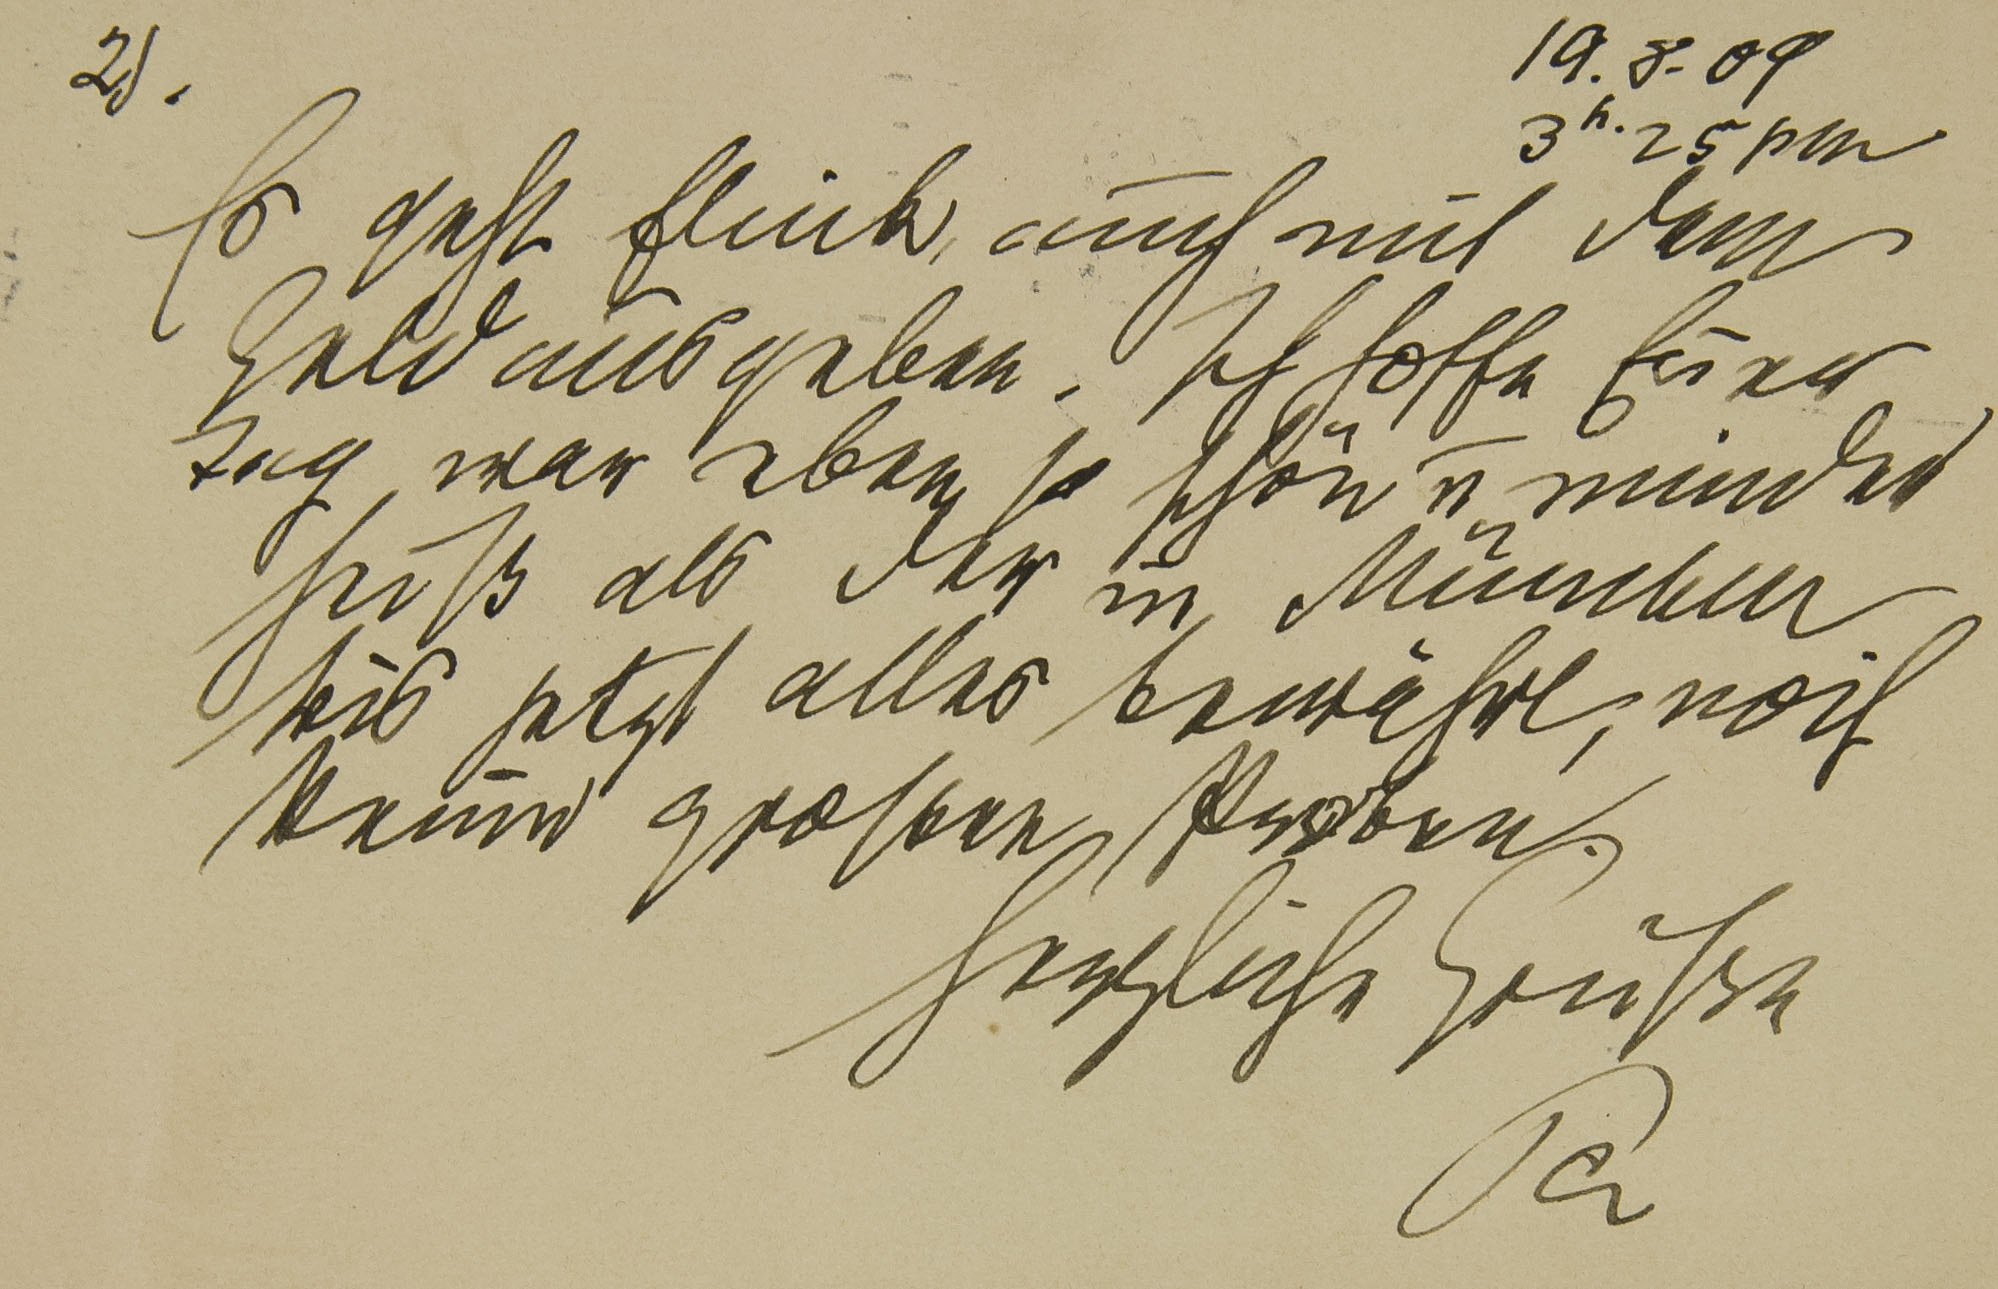 2).
19.8.09
3h. 25 pm
Es geht flink, auch mit dem
Geldausgeben. Ich hoffe Euer
Tag war eben so schön u minder
heiß als der in München
bis jetzt alles bewährt, noch
keine grossen Proben.
Herzliche Grüsse